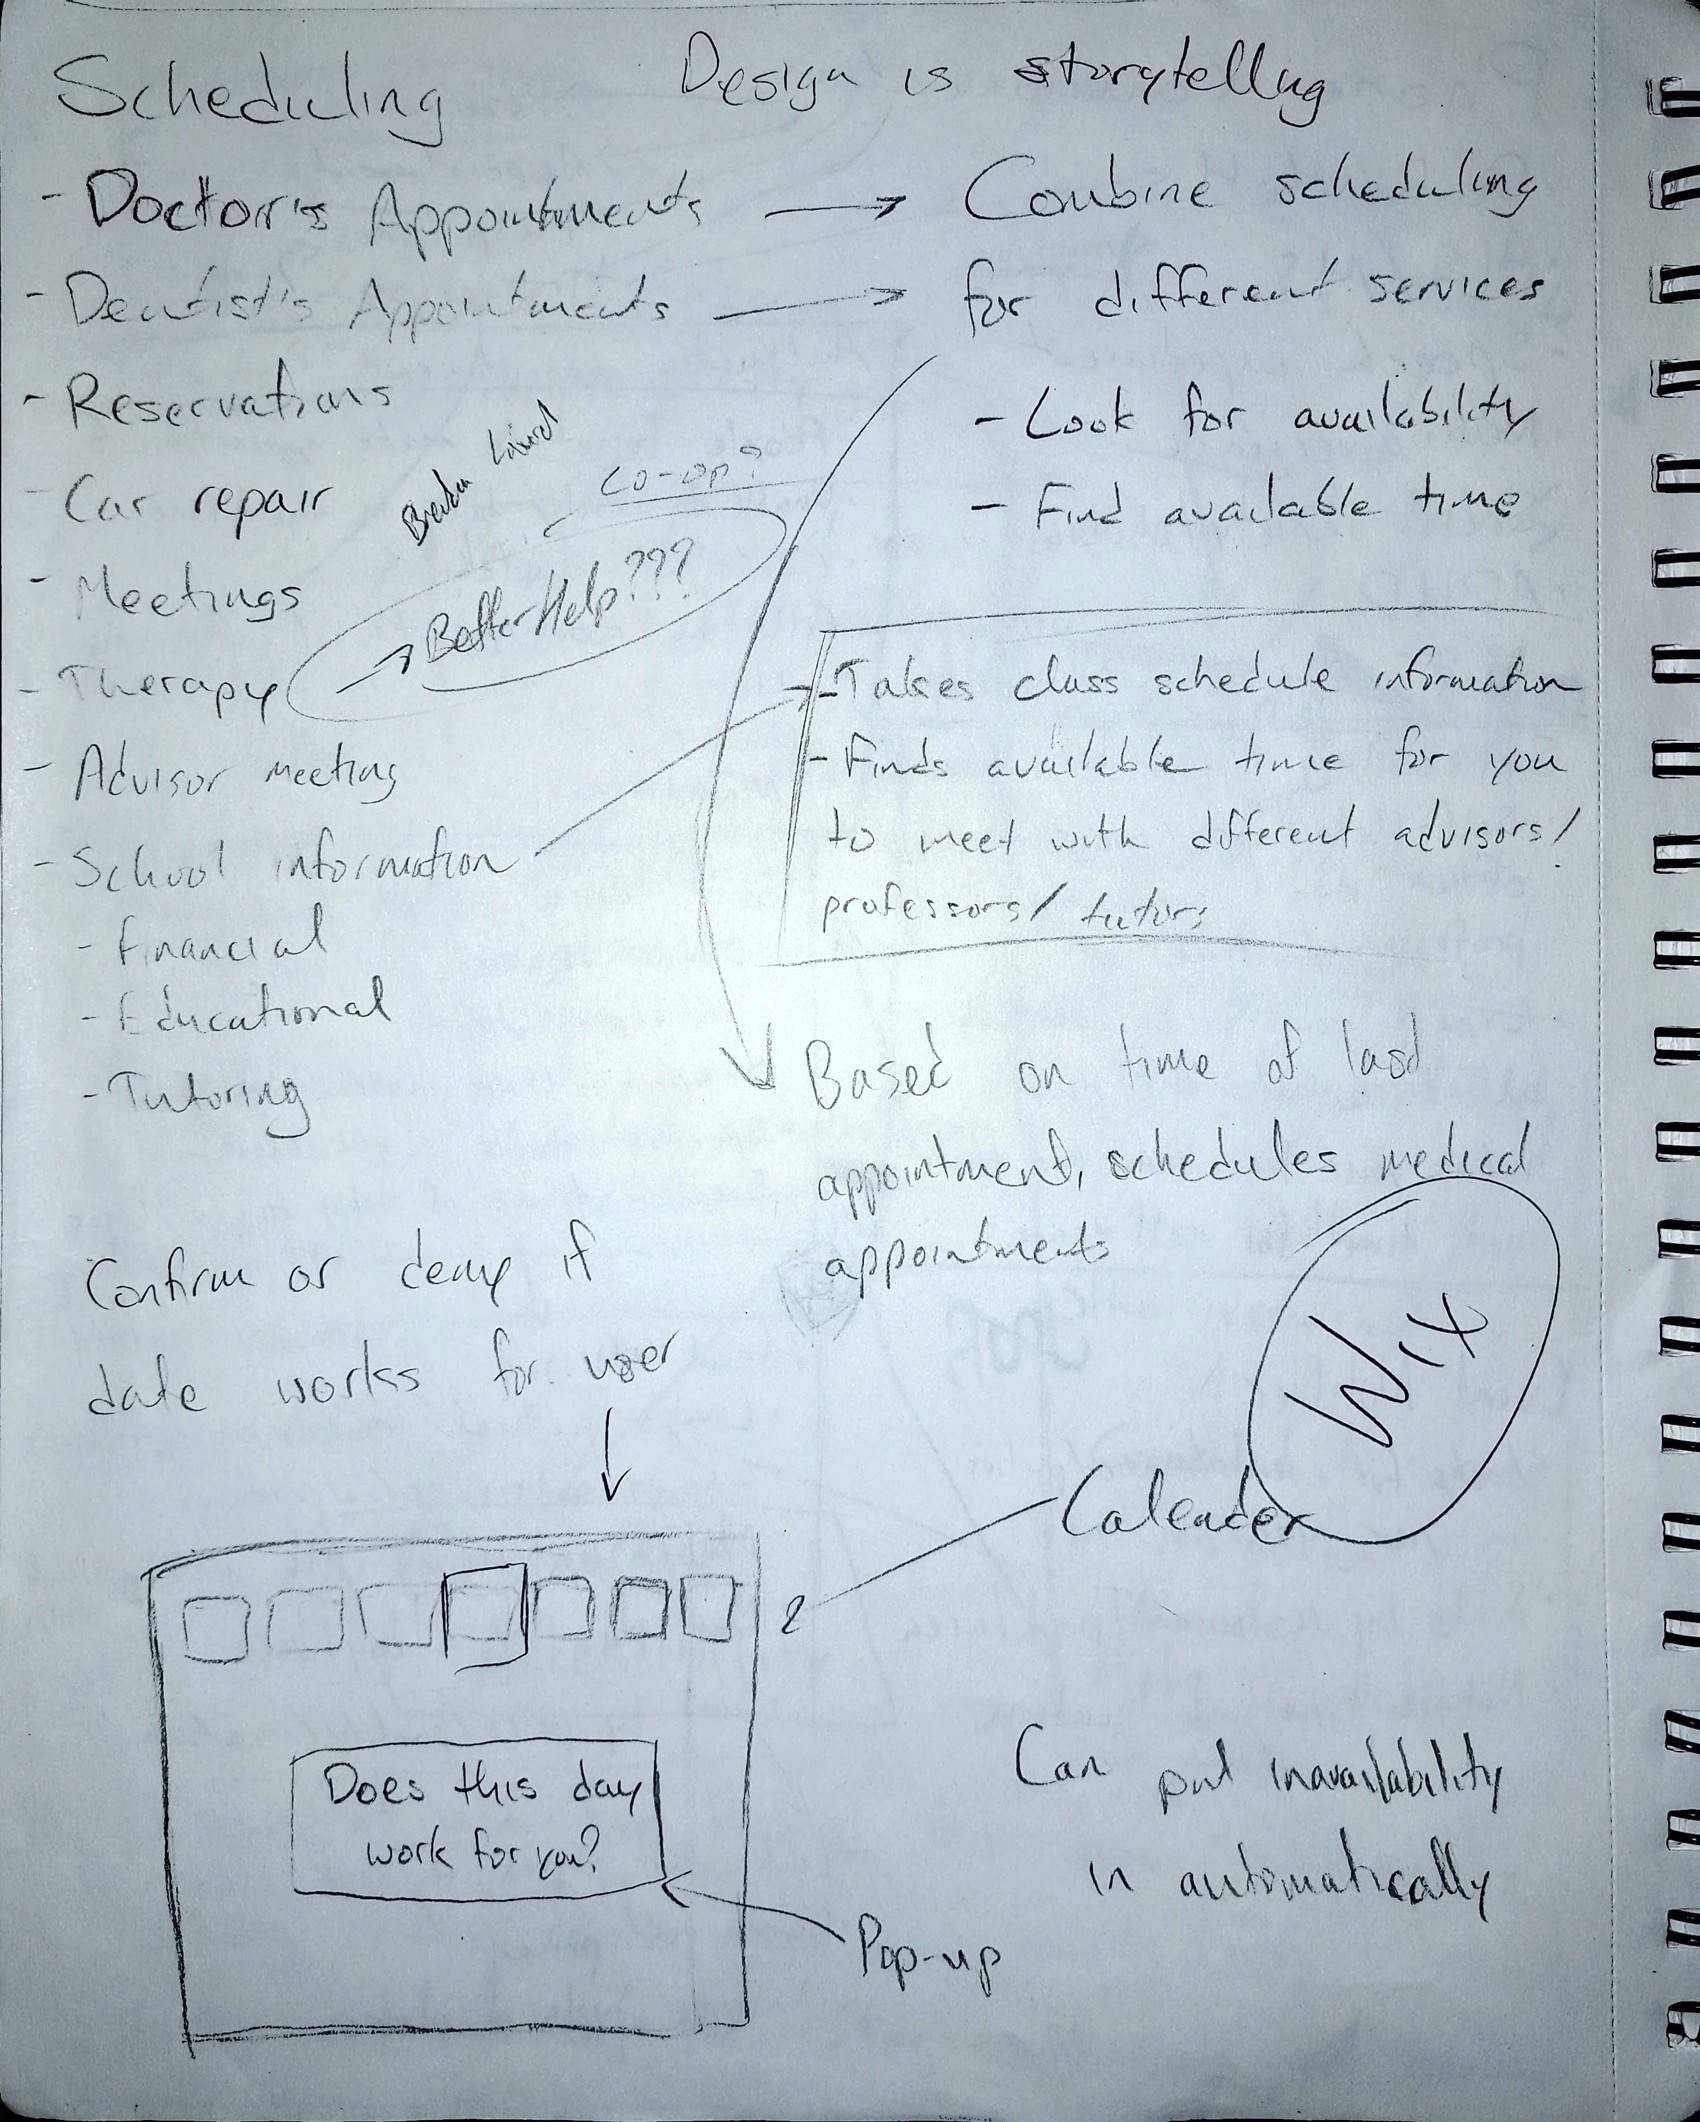 Scheduling
Design is storytellng
- Doctor's Appointments →
Combine scheduling
- Dentist's Appointments →
for different services
- Reservations
- Look for availability
- Car repair
- Find available time
co-op?
- Meetings
→ BetterHelp???
- Therapy
- Takes class schedule information
- Advisor meeting
- Finds available time for you
to meet with different advisors/
professors/ tutors
- School information
- Financial
- Educational
- Tutoring
Based on time of last
appointment, schedules medical
appointments
Confirm or deny if
date works for user
Wix
Calender
Does this day
work for you?
Pop-up
Can put inavailability
in automatically